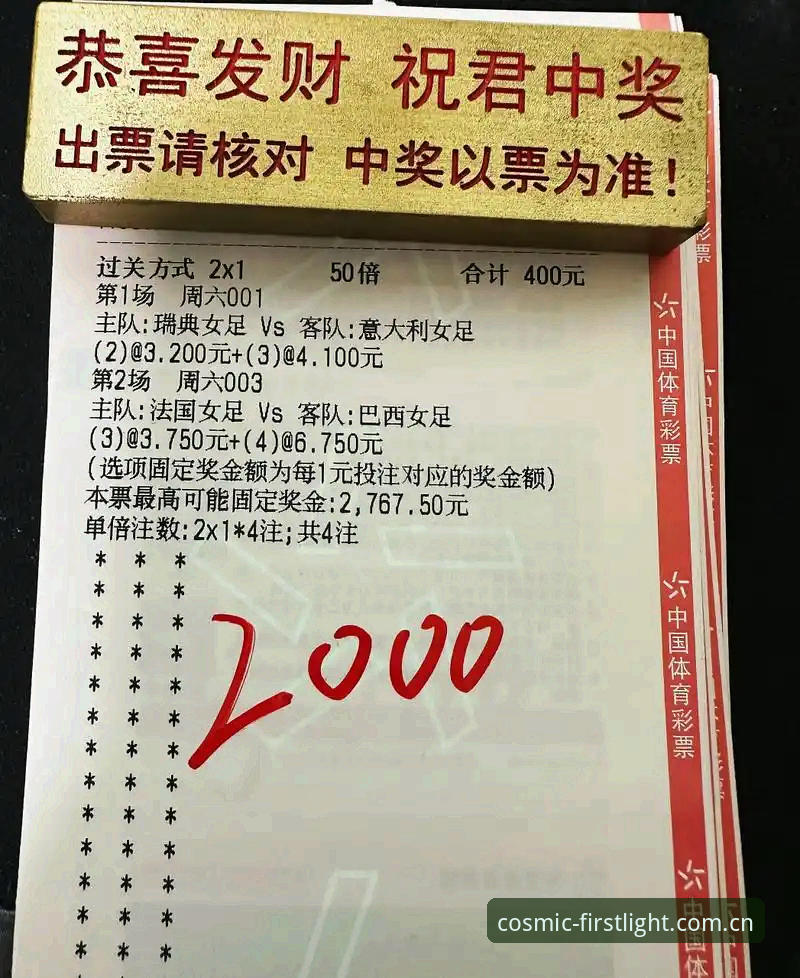 恭喜发财 祝君中奖
出票请核对 中奖以票为准!
过关方式 2x1 50倍 合计 400元
第1场 周六001
主队:瑞典女足 Vs 客队:意大利女足
(2)@3.200元+(3)@4.100元
第2场 周六003
主队:法国女足 Vs 客队:巴西女足
(3)@3.750元+(4)@6.750元
(选项固定奖金额为每1元投注对应的奖金额)
本票最高可能固定奖金:2,767.50元
单倍注数:2x1*4注;共4注
* * *
* * *
* * *
* * *
* * *
* * *
* * *
* * *
* * *
* * *
* * *
* * *
* * *
2000
中国体育彩票
中国体育彩票
中国体
彩票
cosmic-firstlight.com.cn